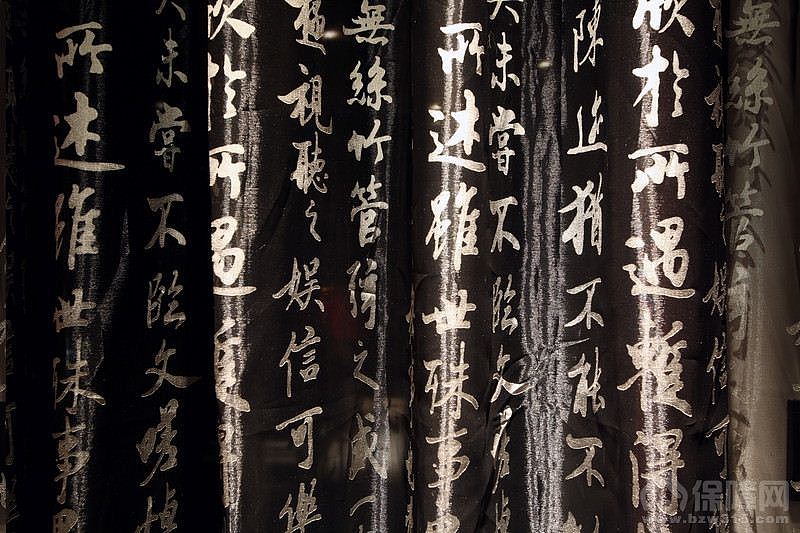 無絲竹管
欣於所遇暫得
陳迹猶不能不
未嘗不臨文嗟
所述雖世殊事
無絲竹管弦之盛一
視聽之娛信可樂
於所遇暫
未嘗不臨文嗟悼
所述雖世殊事
保障网
www.bzw315.com